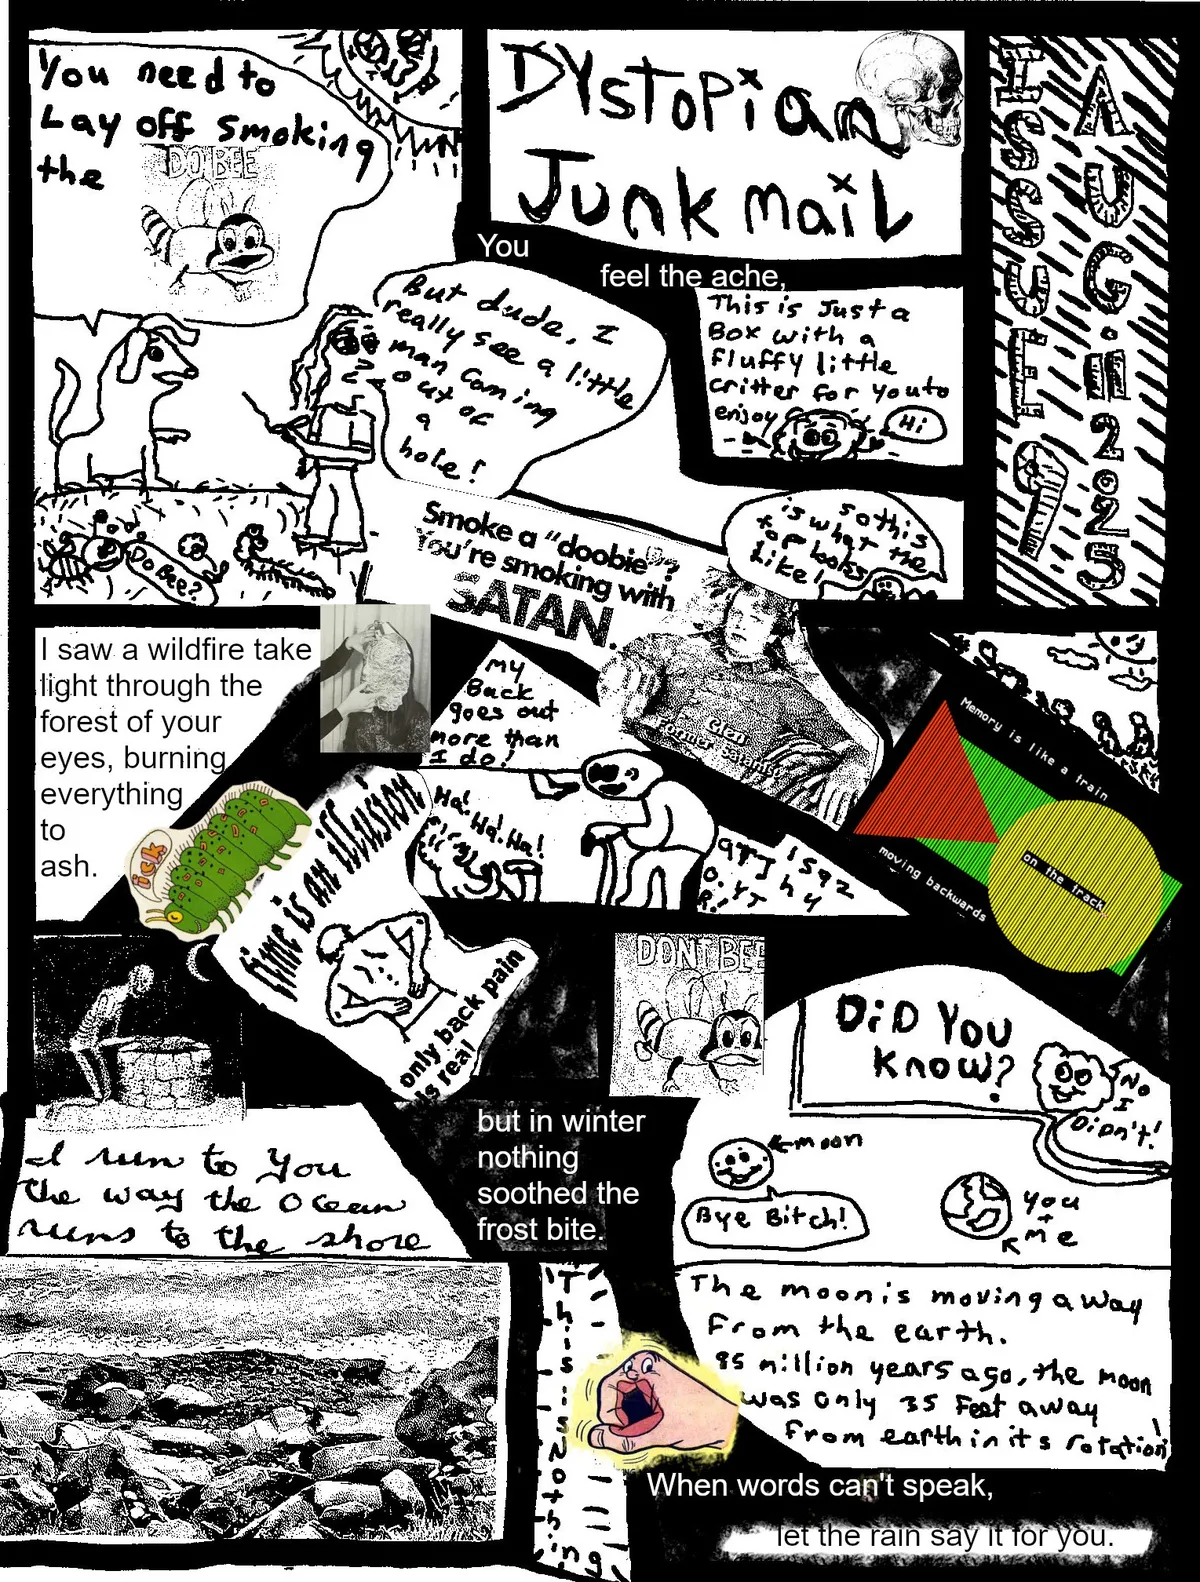 You need to
Lay off smoking
the
DO BEE
Dystopian
Junk mail
ISSUE 1
AUG. 2025
You
feel the ache,
But dude, I
really see a little
man coming
out of
a
hole!
This is Just a
Box with a
fluffy little
critter for you to
enjoy
Hi
Do Bee?
Smoke a "doobie"?
You're smoking with
SATAN.
so this
is what the
top looks
Like!
Glen
Former Satanist
I saw a wildfire take
light through the
forest of your
eyes, burning
everything
to
ash.
My
Back
goes out
more than
I do!
Memory is like a train
moving backwards
on the track
ick
time is an illusion
only back pain
is real
Ha! Ha! Ha!
1592
DONT BEE
DiD You
know?
No
I
Didn't!
moon
Bye Bitch!
you
+
me
I run to you
the way the ocean
runs to the shore
but in winter
nothing
soothed the
frost bite.
The moon is moving away
from the earth.
85 million years ago, the moon
was only 35 Feet away
from earth in its rotation!
This is nothing
When words can't speak,
let the rain say it for you.